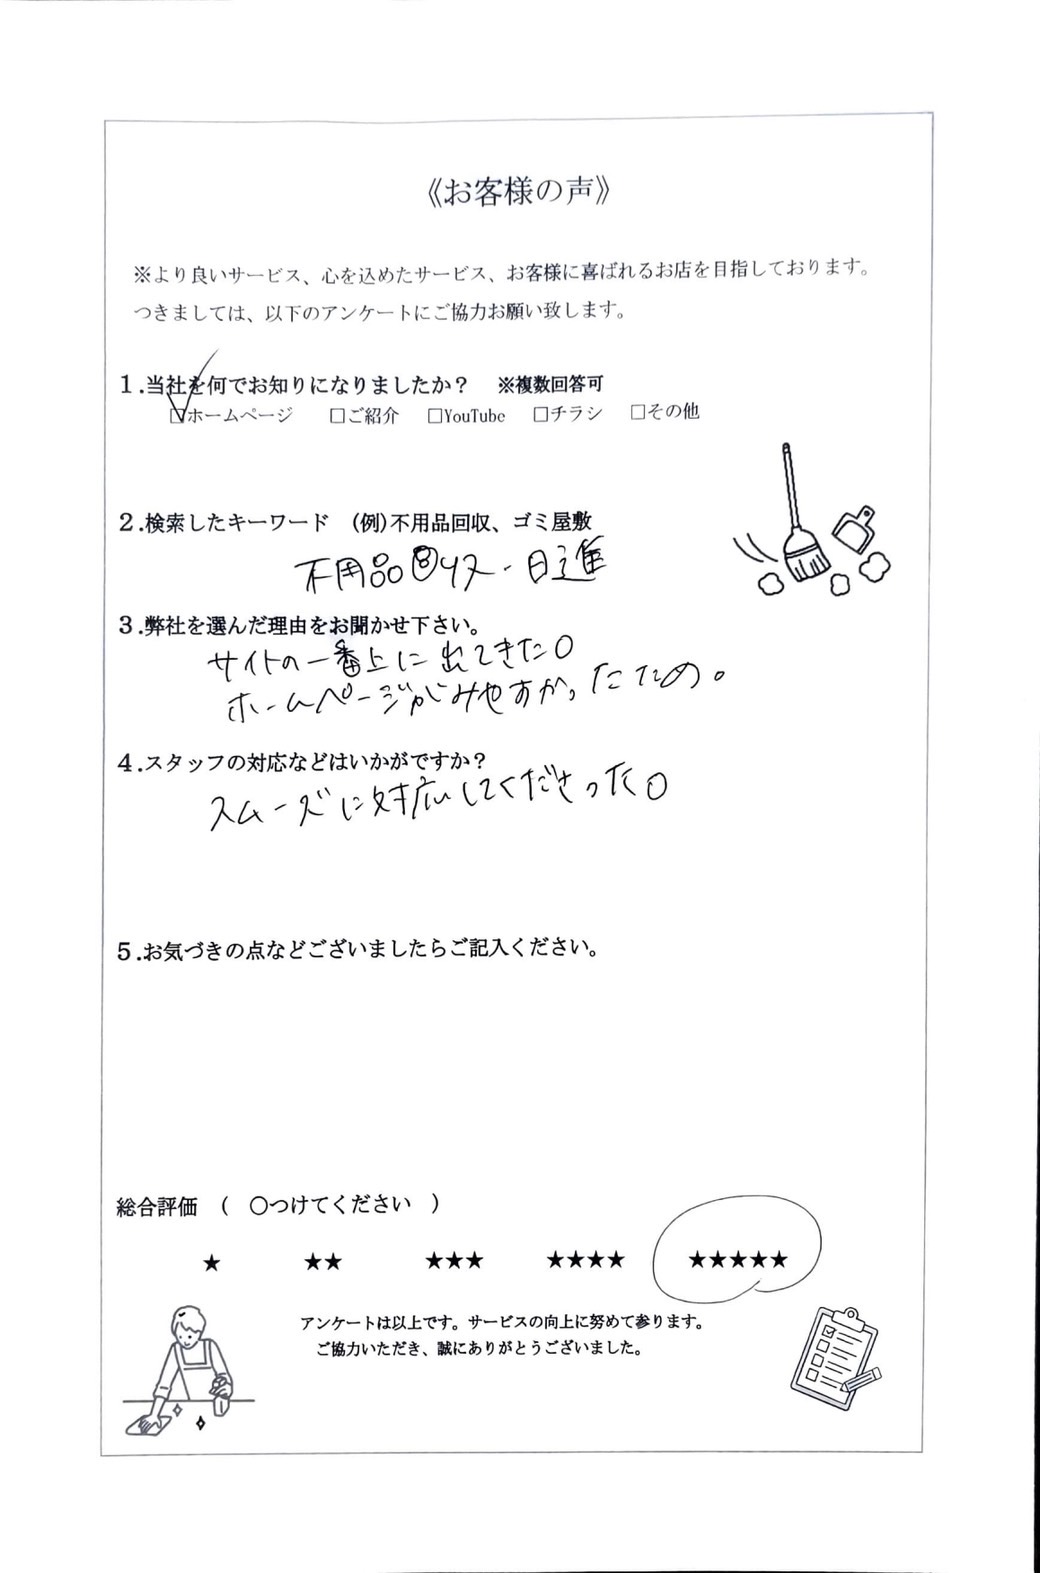 《お客様の声》
※より良いサービス、心を込めたサービス、お客様に喜ばれるお店を目指しております。
つきましては、以下のアンケートにご協力お願い致します。
1.当社を何でお知りになりましたか？　※複数回答可
☑ホームページ　□ご紹介　□YouTube　□チラシ　□その他
2.検索したキーワード　(例)不用品回収、ゴミ屋敷
不用品回収・日進
3.弊社を選んだ理由をお聞かせ下さい。
サイトの一番上に出てきた。
ホームページがみやすかったため。
4.スタッフの対応などはいかがですか？
スムーズに対応してくださった。
5.お気づきの点などございましたらご記入ください。
総合評価　(　〇つけてください　)
★　★★　★★★　★★★★　★★★★★
アンケートは以上です。サービスの向上に努めて参ります。
ご協力いただき、誠にありがとうございました。